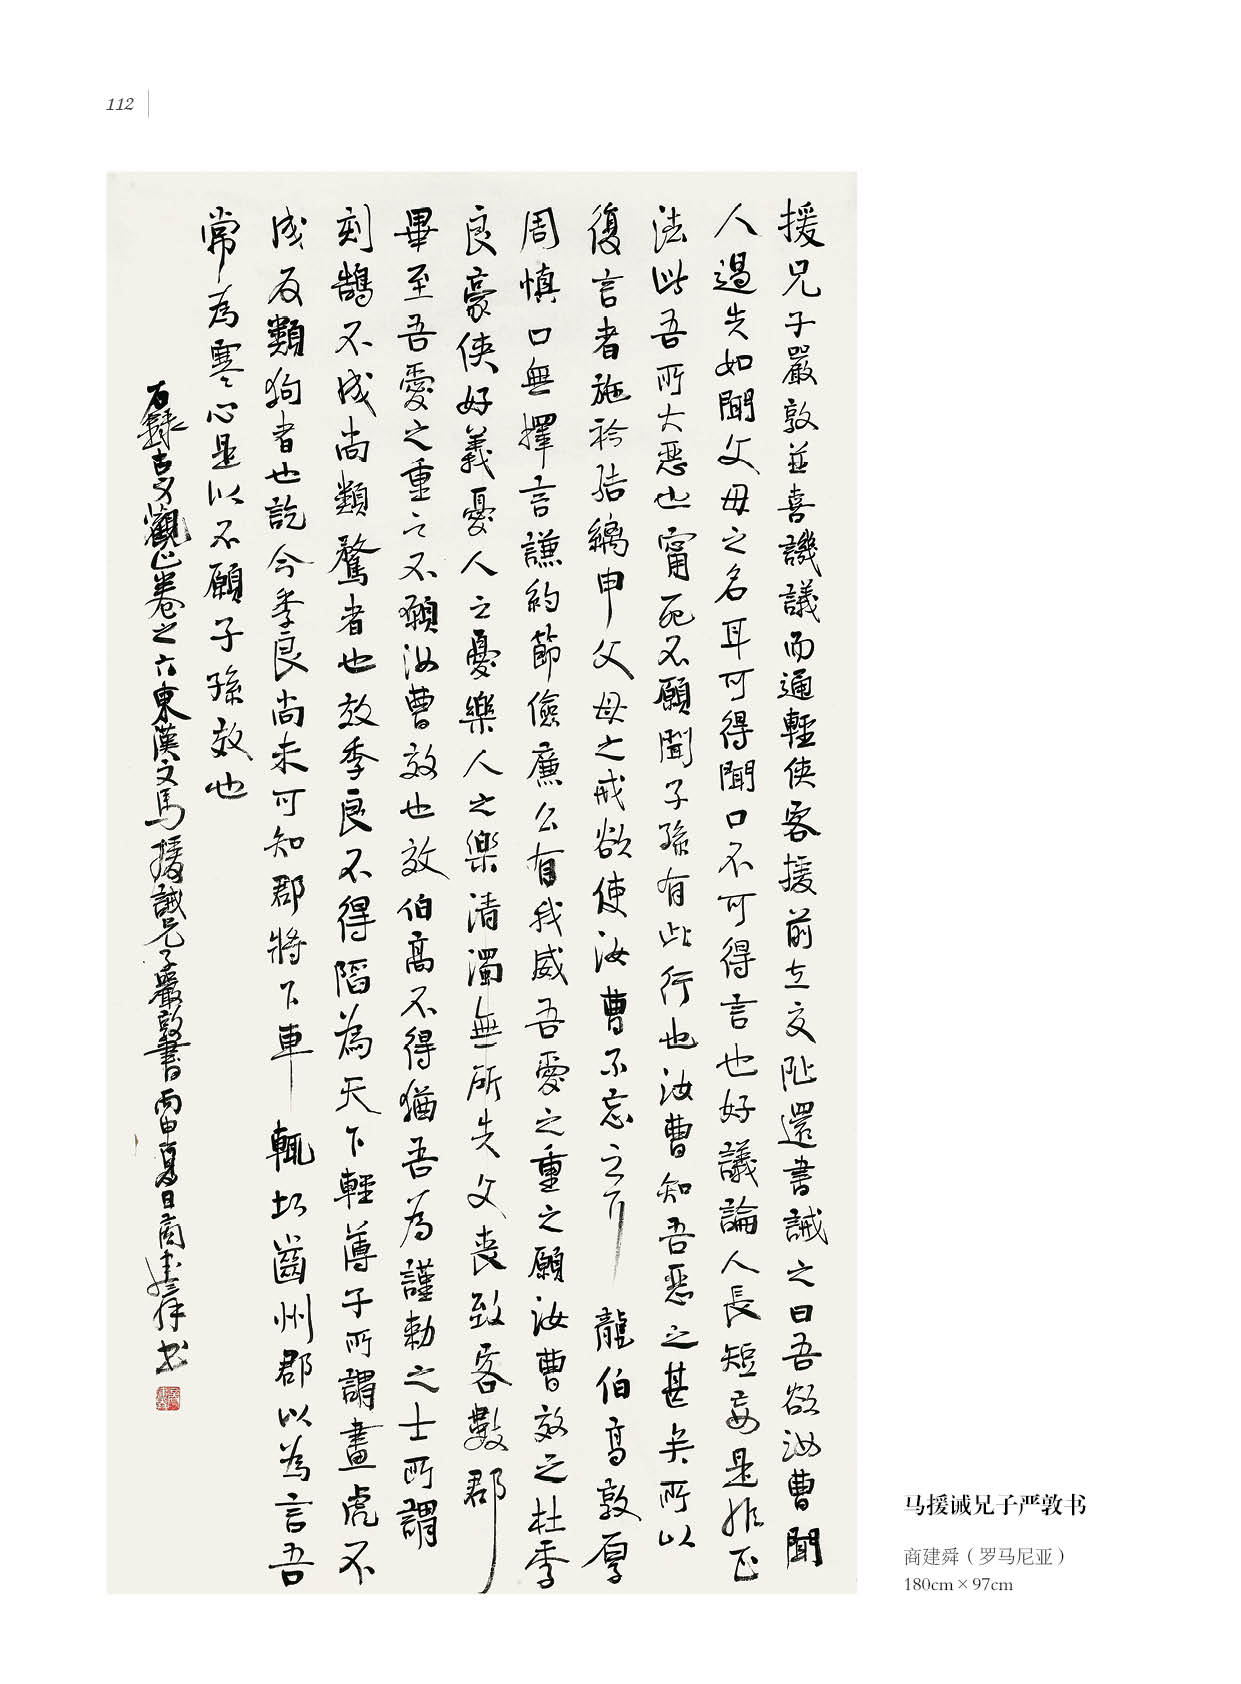 112
援兄子嚴敦並喜譏議而通輕俠客援前在交阯還書誡之曰吾欲汝曹聞
人過失如聞父母之名耳可得聞口不可得言也好議論人長短妄是非正
法此吾所大惡也寧死不願聞子孫有此行也汝曹知吾惡之甚矣所以
復言者施衿結縭申父母之戒欲使汝曹不忘之耳龍伯高敦厚
周慎口無擇言謙約節儉廉公有威吾愛之重之願汝曹效之杜季
良豪俠好義憂人之憂樂人之樂清濁無所失父喪致客數郡
畢至吾愛之重之不願汝曹效也效伯高不得猶吾為謹勅之士所謂
刻鵠不成尚類鶩者也效季良不得陷為天下輕薄子所謂畫虎不
成反類狗者也訖今季良尚未可知郡將下車輒切齒州郡以為言吾
常為寒心是以不願子孫效也
右錄古文觀止卷之六東漢文馬援誡兄子嚴敦書丙申夏日商建舜书
马援诫兄子严敦书
商建舜（罗马尼亚）
180cm×97cm